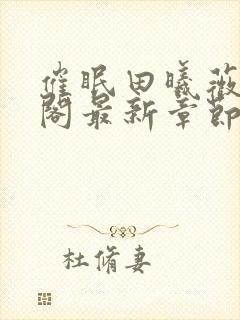 催眠田曦薇
阁最新章节
杜脩妻